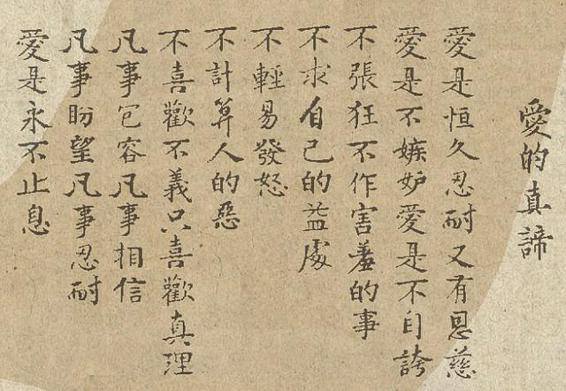 愛的真諦
愛是恒久忍耐又有恩慈
愛是不嫉妒愛是不自誇
不張狂不作害羞的事
不求自己的益處
不輕易發怒
不計算人的惡
不喜歡不義只喜歡真理
凡事包容凡事相信
凡事盼望凡事忍耐
愛是永不止息